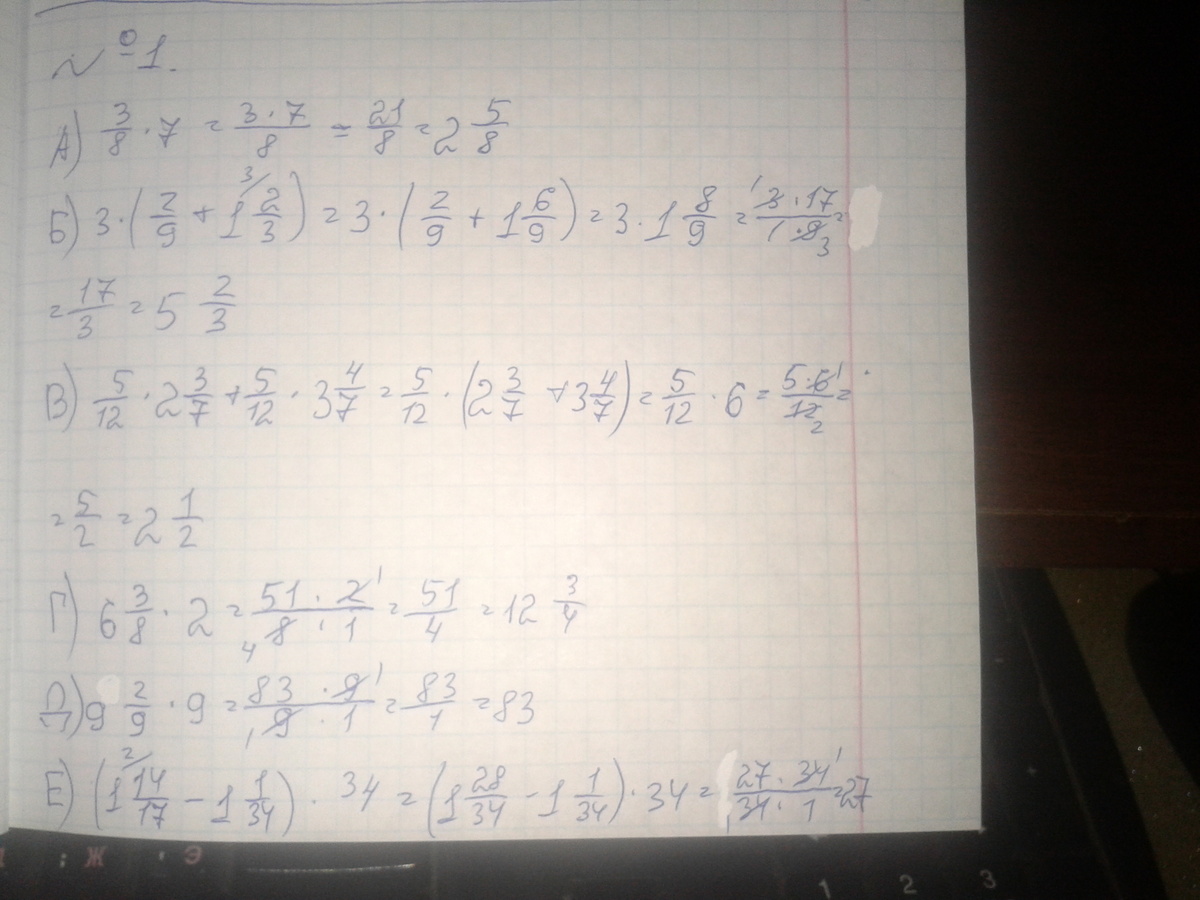 №1.
А) 3/8 · 7 = 3·7/8 = 21/8 = 2 5/8
Б) 3·(2/9 + 1 2/3 3/) = 3·(2/9 + 1 6/9) = 3·1 8/9 = 1 3·17/1·9 3 =
= 17/3 = 5 2/3
В) 5/12 · 2 3/7 + 5/12 · 3 4/7 = 5/12 · (2 3/7 + 3 4/7) = 5/12 · 6 = 5·6 1/12 2 =
= 5/2 = 2 1/2
Г) 6 3/8 · 2 = 51 · 2 1/4 8 · 1 = 51/4 = 12 3/4
Д) 9 2/9 · 9 = 83 · 9 1/1 9 · 1 = 83/1 = 83
Е) (1 14/17 2/ - 1 1/34) · 34 = (1 28/34 - 1 1/34) · 34 = 27 · 34 1/1 34 · 1 = 27
; Ж ' Э
1 2 3